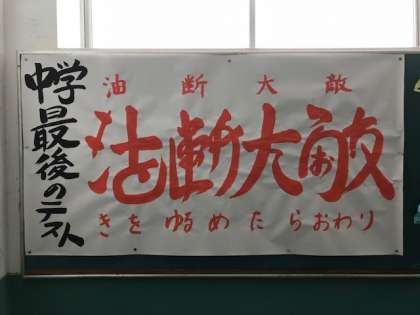 中学最後のテスト
油断大敵
油断大敵
きをゆるめたらおわり